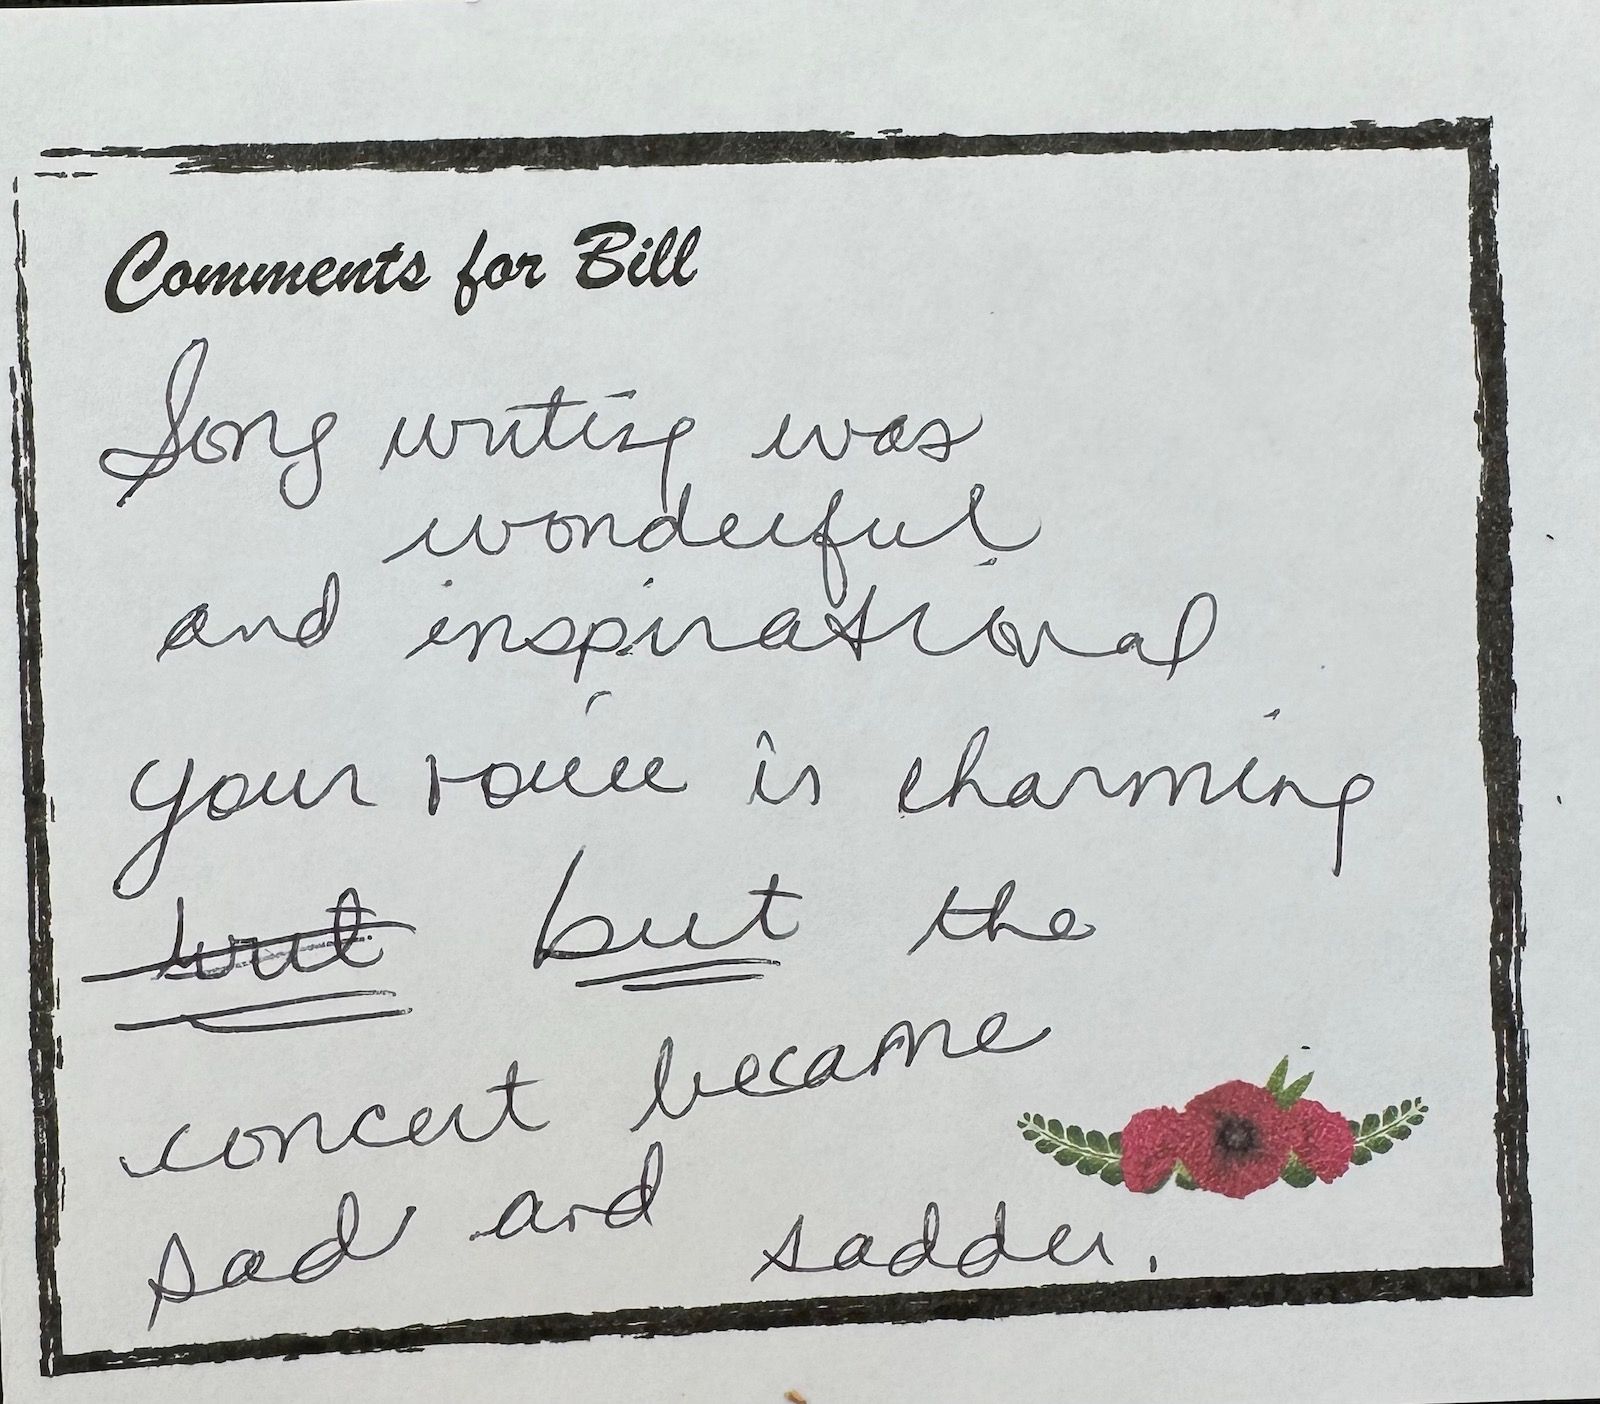 Comments for Bill
Song writing was
wonderful
and inspirational
your voice is charming
but but the
concert became
sad and sadder.